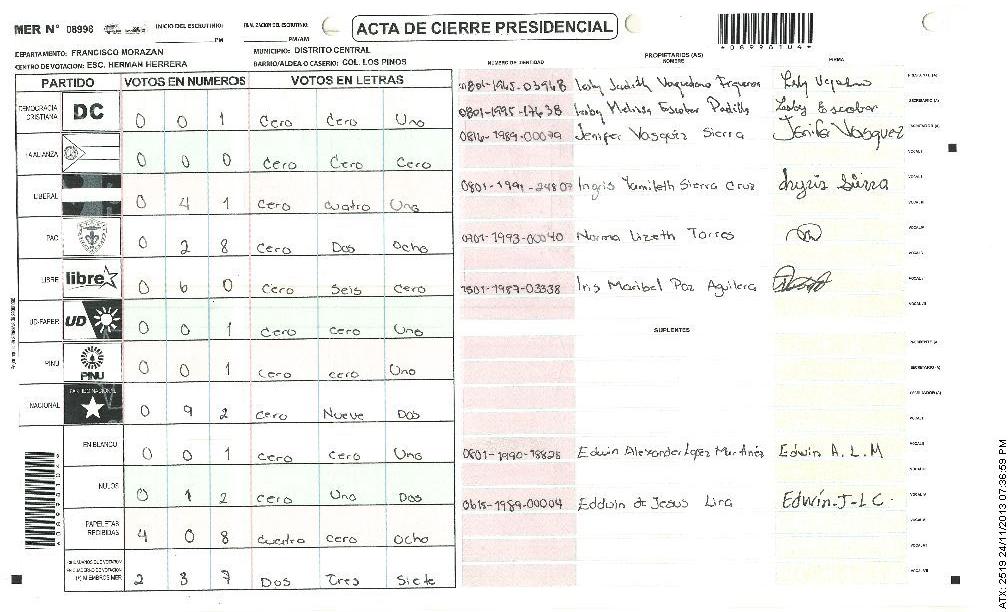 MER N° 08998 INICIO DEL ESCRUTINIO: PM FINALIZACION DEL ESCRUTINIO: PM/AM ACTA DE CIERRE PRESIDENCIAL
DEPARTAMENTO: FRANCISCO MORAZAN MUNICIPIO: DISTRITO CENTRAL
CENTRO DE VOTACION: ESC. HERMAN HERRERA BARRIO/ALDEA O CASERIO: COL. LOS PINOS
NUMERO DE IDENTIDAD PROPIETARIOS (AS) NOMBRE FIRMA
PARTIDO VOTOS EN NUMEROS VOTOS EN LETRAS
DEMOCRACIA CRISTIANA DC 0 0 1 Cero Cero Uno
LA ALIANZA 0 0 0 Cero Cero Cero
LIBERAL 0 4 1 Cero Cuatro Uno
PAC 0 2 8 Cero Dos Ocho
LIBRE libre 0 6 0 Cero Seis Cero
UD-FAPER UD 0 0 1 Cero Cero Uno
PINU PINU 0 0 1 Cero Cero Uno
NACIONAL PARTIDO NACIONAL 0 9 2 Cero Nueve Dos
EN BLANCO 0 0 1 Cero Cero Uno
NULOS 0 1 2 Cero Uno Dos
PAPELETAS RECIBIDAS 4 0 8 Cuatro Cero Ocho
(+) MIEMBROS MER 2 3 7 Dos Tres Siete
0801-1965-03968 Judith Vaquedano Figueroa
0801-1985-17638 Lesby Melissa Escobar Padilla Lesby Escobar
0816-1989-00079 Jenifer Vasquez Sierra Jenifer Vasquez
0801-1991-24807 Ingris Yamileth Sierra Cruz Ingris Sierra
0701-1993-00040 Norma Lizeth Torres
1501-1987-03338 Iris Maribel Paz Aguilera
SUPLENTES
0801-1990-18828 Edwin Alexander Lopez Martinez Edwin A. L. M
0615-1989-00004 Eddwin de Jesus Lira Edwin-J-LC.
ATX: 2519 24/11/2013 07:36:59 PM